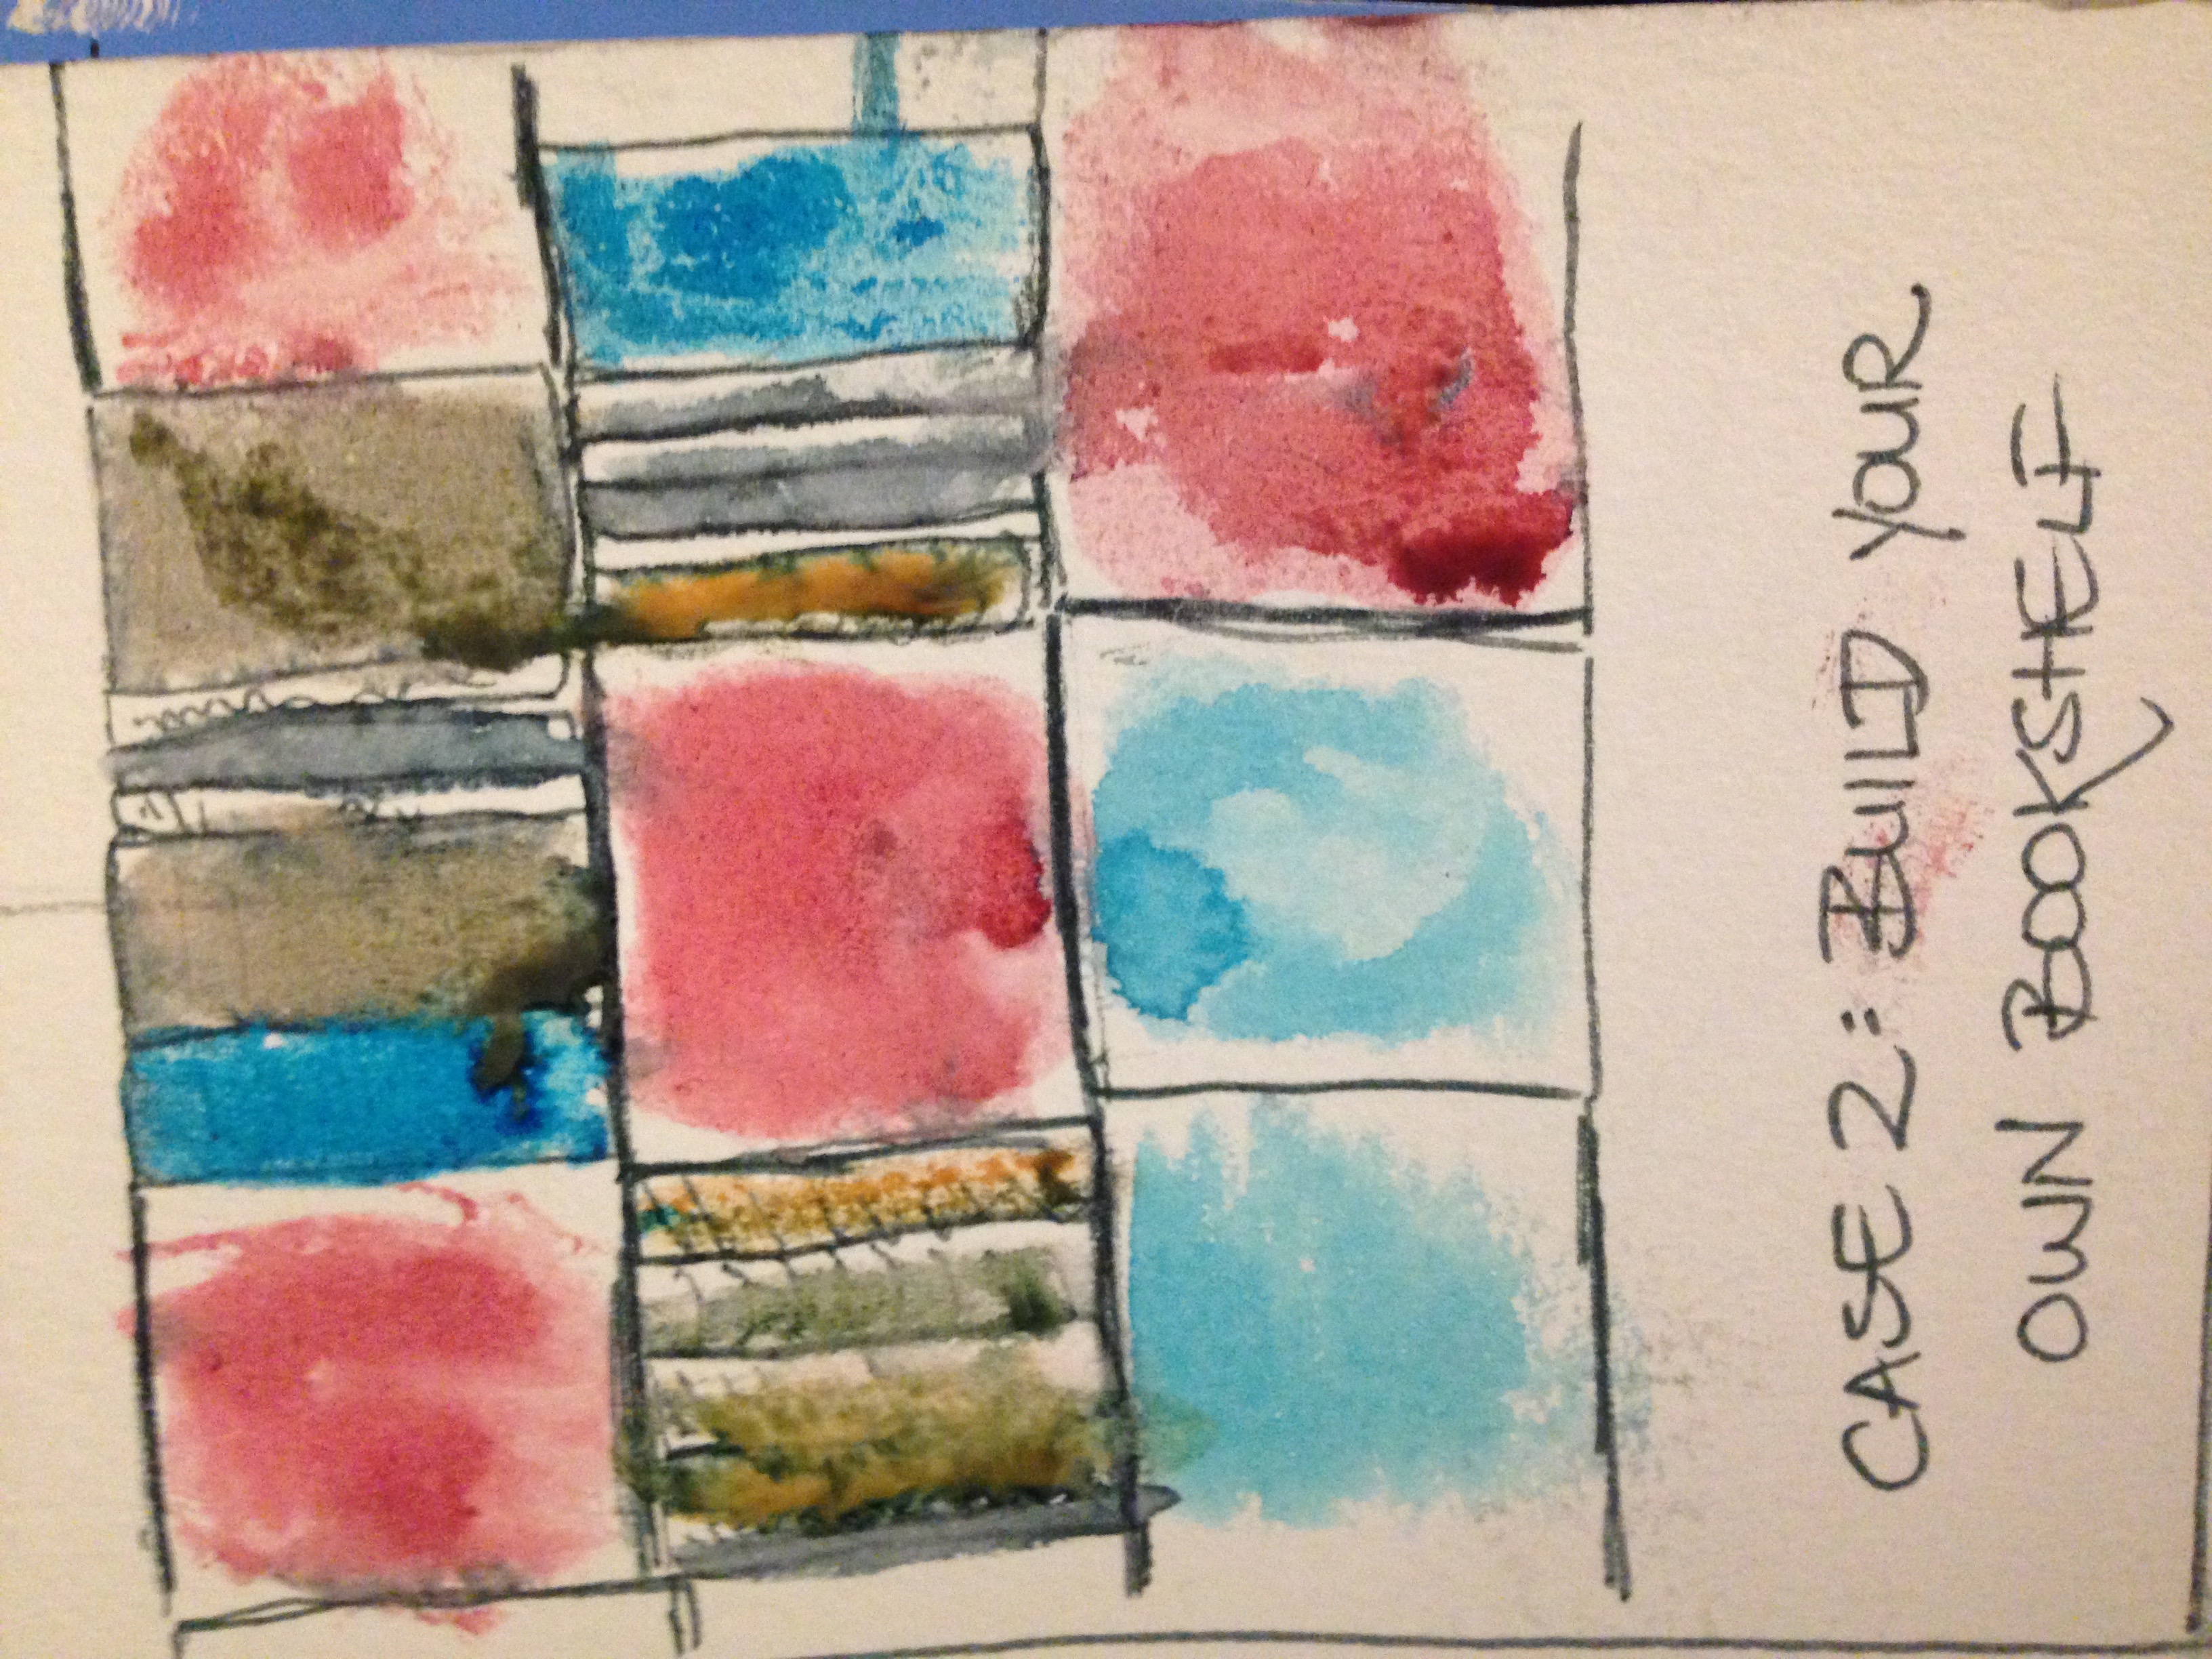 CASE 2: BUILD YOUR
OWN BOOKSHELF